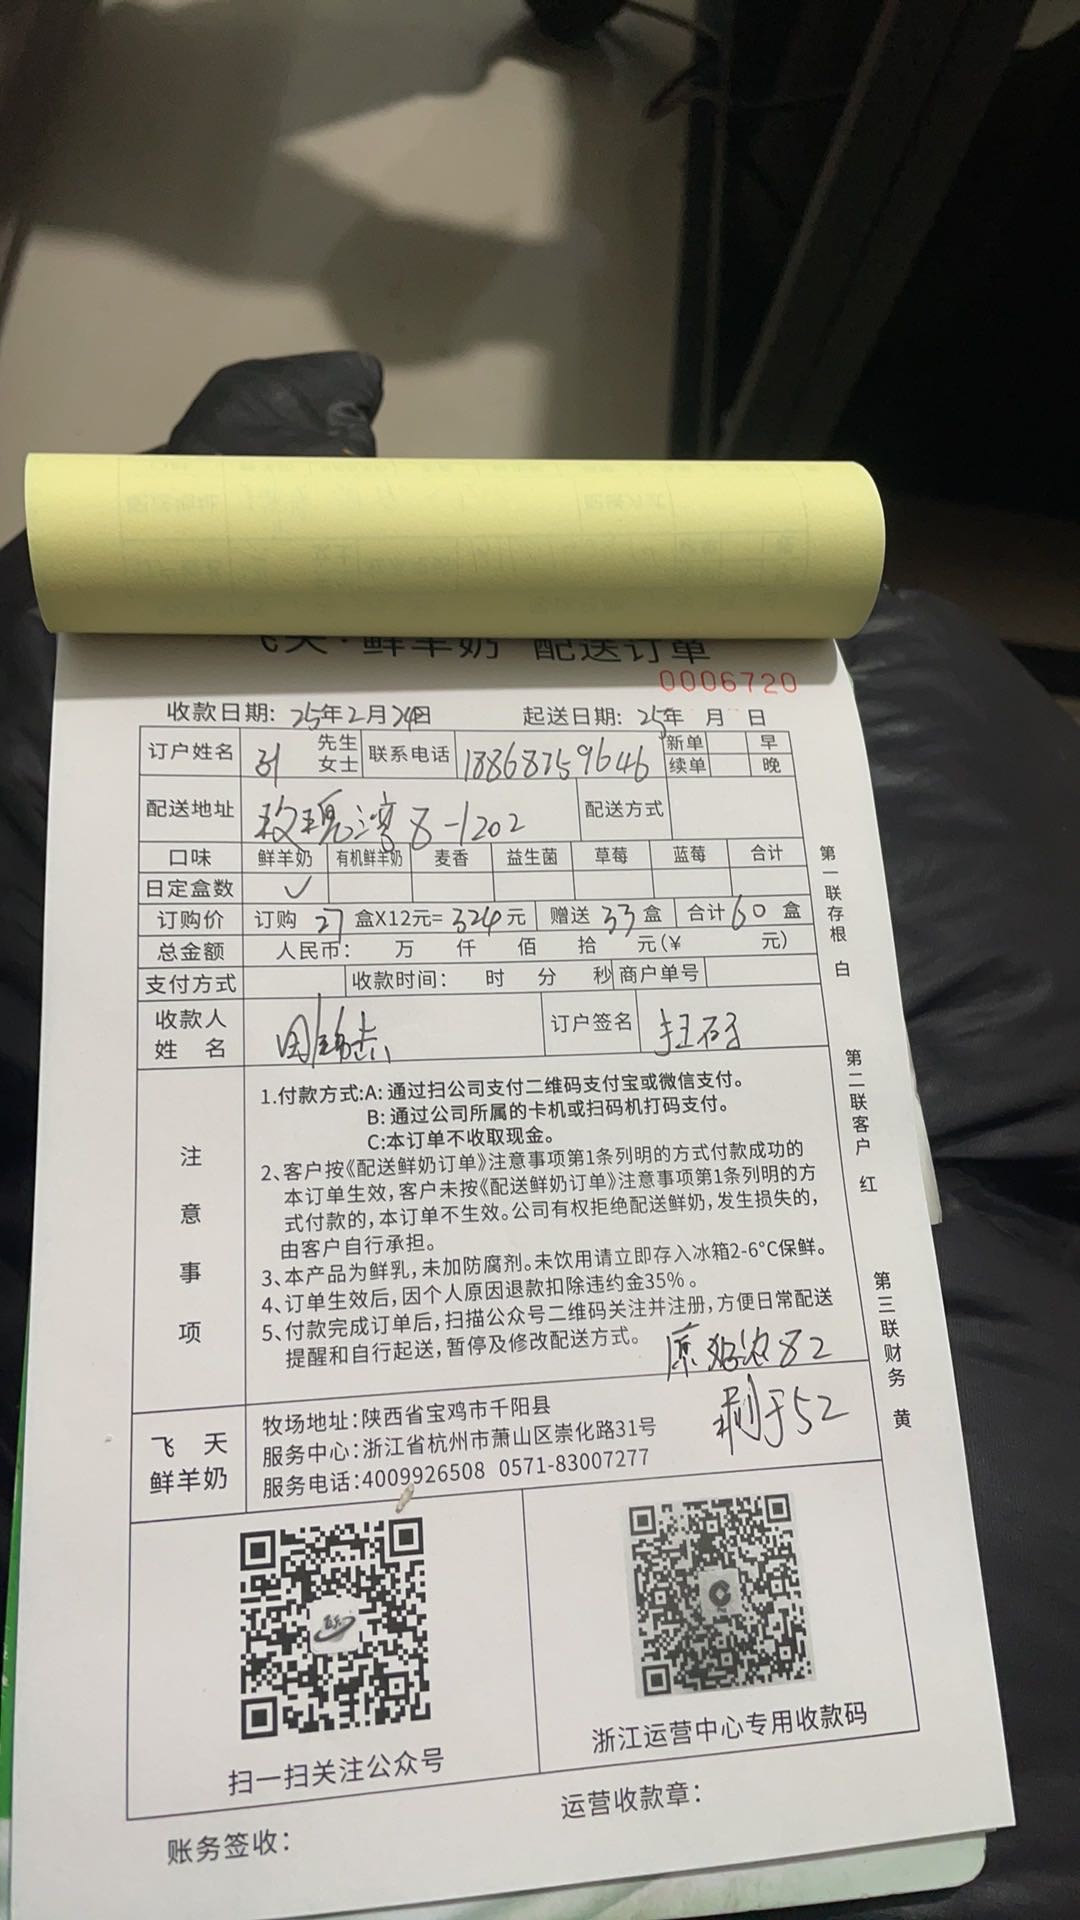 飞天·鲜羊奶 配送订单
0006720
收款日期: 25年2月24日 起送日期: 25年 月 日
订户姓名 先生 女士 联系电话 18868759646 新单 早
续单 晚
配送地址 玫瑰湾8-1202 配送方式
口味 鲜羊奶 有机鲜羊奶 麦香 益生菌 草莓 蓝莓 合计
日定盒数 ✓
订购价 订购 27 盒X12元= 324 元 赠送 33 盒 合计 60 盒
总金额 人民币: 万 仟 佰 拾 元(¥ 元)
支付方式 收款时间: 时 分 秒 商户单号
收款人姓名 订户签名 扫码
注意事项
1.付款方式:A: 通过扫公司支付二维码支付宝或微信支付。
B: 通过公司所属的卡机或扫码机打码支付。
C:本订单不收取现金。
2、客户按《配送鲜奶订单》注意事项第1条列明的方式付款成功的
本订单生效, 客户未按《配送鲜奶订单》注意事项第1条列明的方
式付款的, 本订单不生效。公司有权拒绝配送鲜奶, 发生损失的,
由客户自行承担。
3、本产品为鲜乳, 未加防腐剂。未饮用请立即存入冰箱2-6°C保鲜。
4、订单生效后, 因个人原因退款扣除违约金35%。
5、付款完成订单后, 扫描公众号二维码关注并注册, 方便日常配送
提醒和自行起送, 暂停及修改配送方式。
82
剩于52
飞天鲜羊奶
牧场地址:陕西省宝鸡市千阳县
服务中心:浙江省杭州市萧山区崇化路31号
服务电话:4009926508 0571-83007277
扫一扫关注公众号
浙江运营中心专用收款码
账务签收:
运营收款章:
第一联存根 白
第二联客户 红
第三联财务 黄